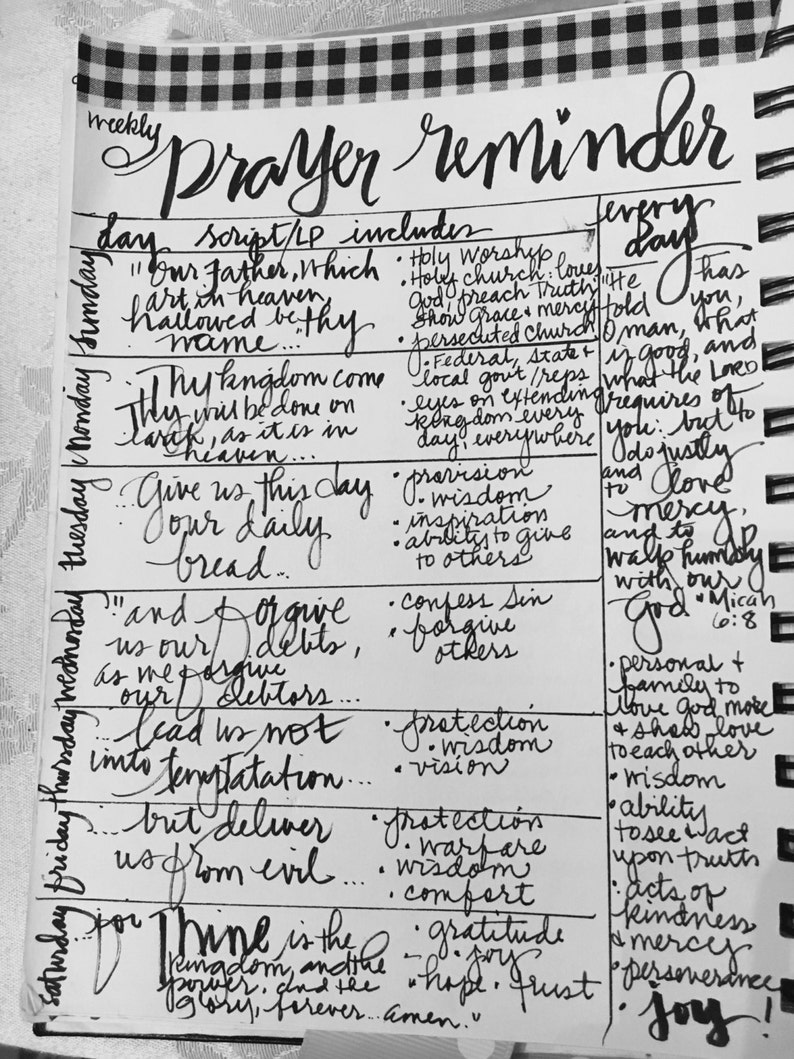 weekly
prayer reminder
day script/LP includes
Sunday
"Our Father, Which
art in heaven,
hallowed be thy
name..."
• Holy Worship
• Holy church: loves
God, preach Truth,
show grace + mercy
• persecuted church
Monday
... Thy kingdom come
Thy will be done on
earth, as it is in
heaven...
• Federal, state +
local gov't/reps
• eyes on extending
kingdom every
day, everywhere
tuesday
...Give us this day
our daily
bread...
• provision
• wisdom
• inspiration
• ability to give
to others
Wednesday
..."and forgive
us our debts,
as we forgive
our debtors...
• confess sin
• forgive
others
thursday
... lead us not
into temptatation...
• protection
• wisdom
• vision
friday
...but deliver
us from evil...
• protection
• warfare
• wisdom
• comfort
saturday
...for Thine is the
kingdom, and the
power, and the
glory, forever... amen."
• gratitude
• joy
• hope • trust
every
day
"He has
told you,
O man, what
is good, and
what the LORD
requires of
you: but to
do justly
and to love
mercy,
and to
walk humbly
with our
God" Micah
6:8
• personal +
family to
love God more
+ show love
to each other
• wisdom
• ability
to see + act
upon truth
• acts of
kindness
+ mercy
• perseverance
• joy!